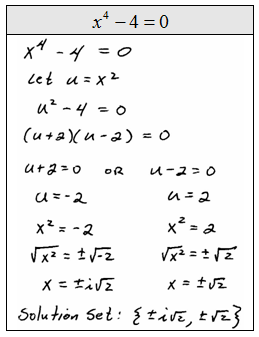 x⁴ − 4 = 0
x⁴ − 4 = 0
Let u = x²
u² − 4 = 0
(u+2)(u−2) = 0
u+2=0 OR u−2=0
u=−2 u=2
x²=−2 x²=2
√x² = ±√−2 √x² = ±√2
x = ±i√2 x = ±√2
Solution Set: {±i√2, ±√2}